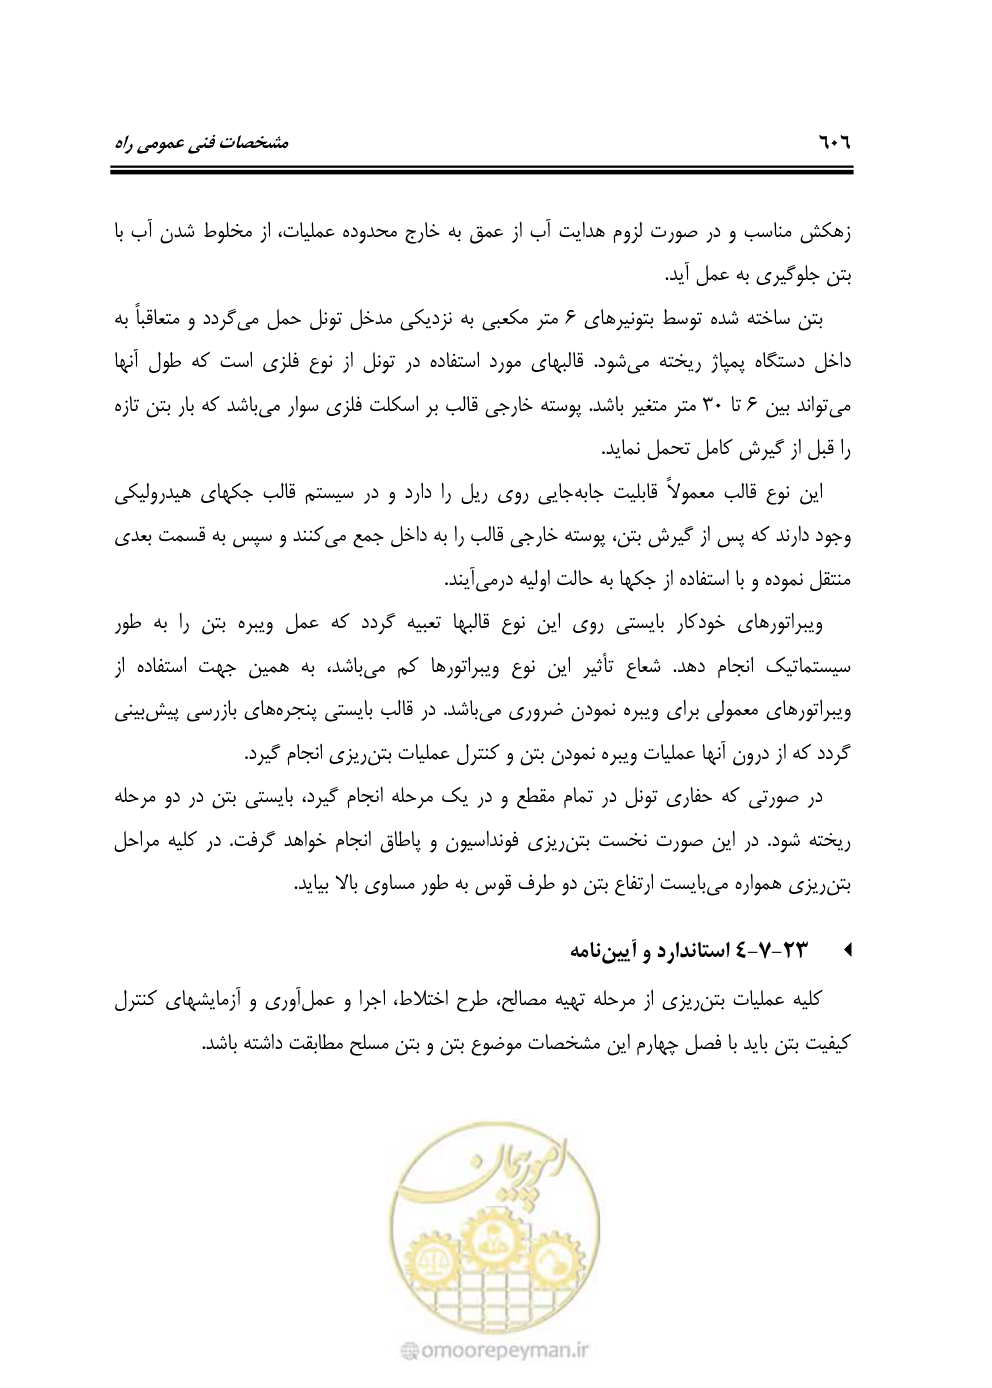 ۶۰۶ مشخصات فنی عمومی راه
زهکش مناسب و در صورت لزوم هدایت آب از عمق به خارج محدوده عملیات، از مخلوط شدن آب با
بتن جلوگیری به عمل آید.
بتن ساخته شده توسط بتونیرهای ۶ متر مکعبی به نزدیکی مدخل تونل حمل می‌گردد و متعاقباً به
داخل دستگاه پمپاژ ریخته می‌شود. قالبهای مورد استفاده در تونل از نوع فلزی است که طول آنها
می‌تواند بین ۶ تا ۳۰ متر متغیر باشد. پوسته خارجی قالب بر اسکلت فلزی سوار می‌باشد که بار بتن تازه
را قبل از گیرش کامل تحمل نماید.
این نوع قالب معمولاً قابلیت جابه‌جایی روی ریل را دارد و در سیستم قالب جکهای هیدرولیکی
وجود دارند که پس از گیرش بتن، پوسته خارجی قالب را به داخل جمع می‌کنند و سپس به قسمت بعدی
منتقل نموده و با استفاده از جکها به حالت اولیه درمی‌آیند.
ویبراتورهای خودکار بایستی روی این نوع قالبها تعبیه گردد که عمل ویبره بتن را به طور
سیستماتیک انجام دهد. شعاع تأثیر این نوع ویبراتورها کم می‌باشد، به همین جهت استفاده از
ویبراتورهای معمولی برای ویبره نمودن ضروری می‌باشد. در قالب بایستی پنجره‌های بازرسی پیش‌بینی
گردد که از درون آنها عملیات ویبره نمودن بتن و کنترل عملیات بتن‌ریزی انجام گیرد.
در صورتی که حفاری تونل در تمام مقطع و در یک مرحله انجام گیرد، بایستی بتن در دو مرحله
ریخته شود. در این صورت نخست بتن‌ریزی فونداسیون و پاطاق انجام خواهد گرفت. در کلیه مراحل
بتن‌ریزی همواره می‌بایست ارتفاع بتن دو طرف قوس به طور مساوی بالا بیاید.
۲۳-۷-۴ استاندارد و آیین‌نامه
کلیه عملیات بتن‌ریزی از مرحله تهیه مصالح، طرح اختلاط، اجرا و عمل‌آوری و آزمایشهای کنترل
کیفیت بتن باید با فصل چهارم این مشخصات موضوع بتن و بتن مسلح مطابقت داشته باشد.
امور پیمان
omoorepeyman.ir